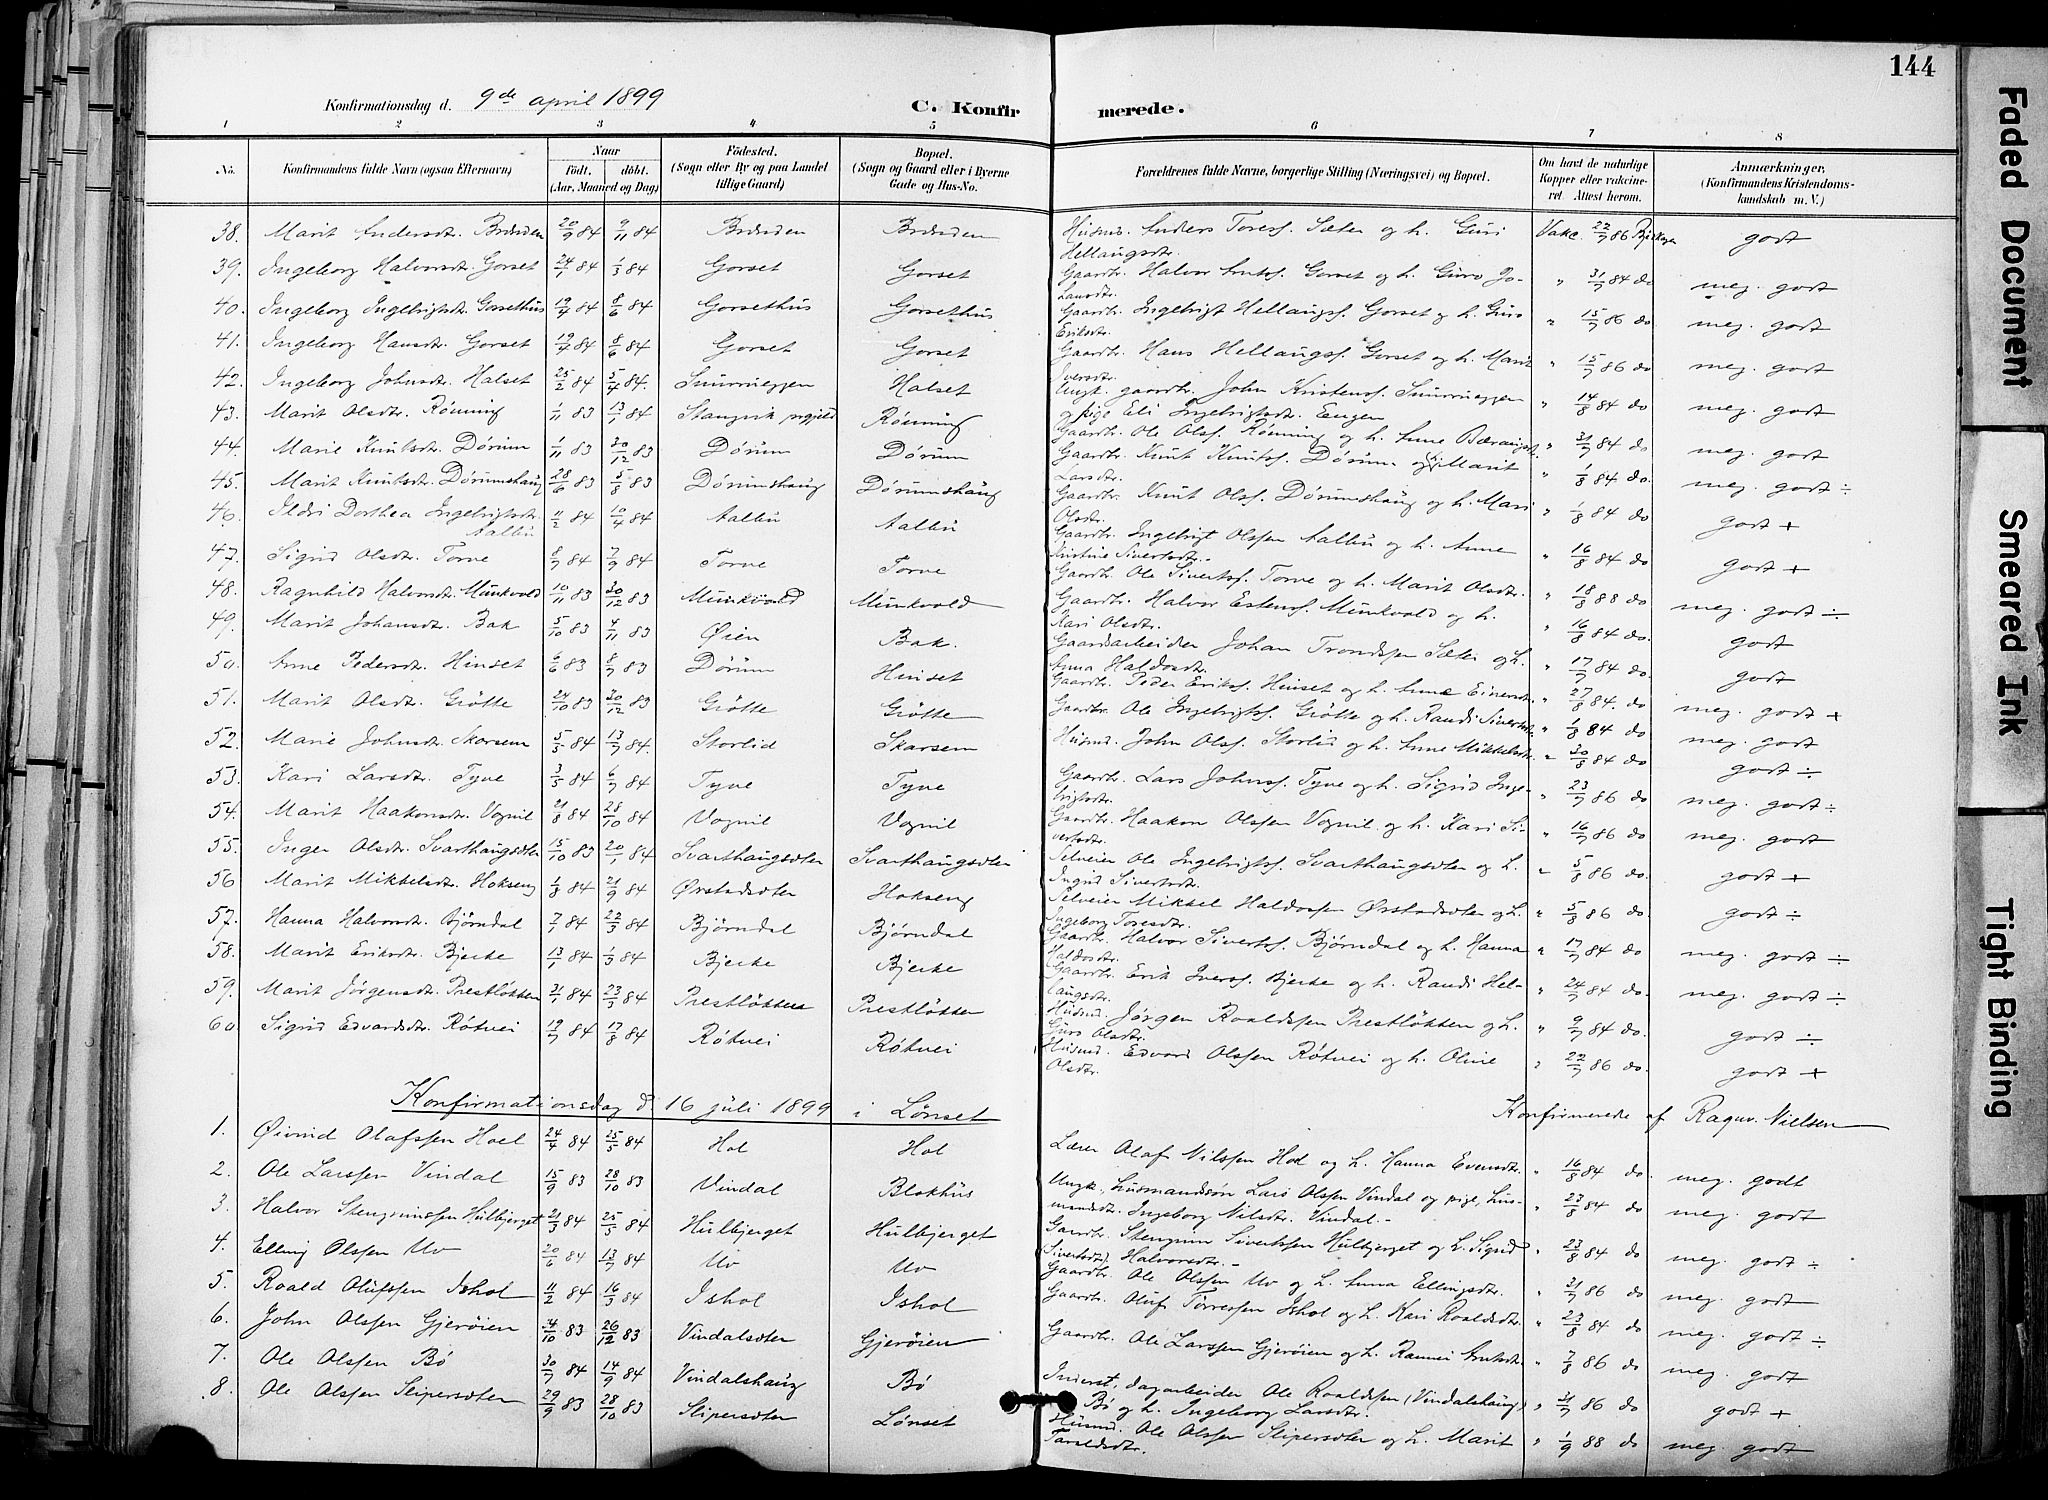 144
Konfirmationsdag d. 9de april 1899
C. Konfirmerede.
1 2 3 4 5 6 7 8
No. Konfirmandens fulde Navn (ogsaa Efternavn) Naar Født. døbt. (Aar, Maaned og Dag) Fødested. (Sogn eller By og paa Landet tillige Gaard) Bopæl. (Sogn og Gaard eller i Byerne Gade og Hus-No. Forældrenes fulde Navne, borgerlige Stilling (Næringsvei) og Bopæl. Om havt de naturlige Kopper eller vakcineret Attest herom. Anmærkninger, (Konfirmandens Kristendomskundskab m. V.)
38. Marit Andersdtr. Bræaden 20/9 84 9/11 84 Bræaden Bræaden Husmd. Anders Toress. Sæter og h. Guri Hellaugsdtr. Vakc. 22/7 86 godt
39. Ingeborg Halvorsdtr. Gorset 24/1 84 1/3 84 Gorset Gorset Gaardbr. Halvor Arntss. Gorset og h. Guro Jolausdtr. " 31/7 84 do meg. godt
40. Ingeborg Ingebrigtsdtr. Gorsethus 19/4 84 8/6 84 Gorsethus Gorsethus Gaardbr. Ingebrigt Hellaugss. Gorset og h. Guro Eriksdtr. " 15/7 86 do. meg. godt
41. Ingeborg Hansdtr. Gorset 19/4 84 8/6 84 Gorset Gorset Gaardbr. Hans Hellaugss. Gorset og h. Marit Iversdtr. " 15/7 86 do meg. godt
42. Ingeborg Johnsdtr. Halset 25/2 84 5/4 84. Snurrueggen Halset Ungk. gaardbr. John Kristenss. Snurrueggen og pige Eli Ingebrigtsdtr. Engen " 14/8 84 do meg. godt
43. Marit Olsdtr. Rønning 1/11 83 13/1 84 Stangvik prgjeld Rønning Gaardbr. Ole Olss. Rønning og h. Anne " 31/7 84 do meg. godt
44. Marie Knutsdtr. Dørum 1/11 83 30/12 83 Dørum Dørum Gaardbr. Knut Knutss. Dørum og h. Marit Larsdtr. " 1/8 84 do. meg. godt ÷
45. Marit Knutsdtr. Dørumshaug 28/6 83 5/8 83 Dørumshaug Dørumshaug Gaardbr. Knut Olss. Dørumshaug og h. Mari Olsdtr. " 1/8 84 do godt +
46. Ildri Dorthea Ingebrigtsdtr. Aalbu 11/2 84 10/4 84 Aalbu Aalbu Gaardbr. Ingebrigt Olssen Aalbu og h. Anne Kristine Sivertsdtr. " 16/8 84 do godt +
47. Sigrid Olsdtr. Torve 8/7 84 7/9 84 Torve Torve Gaardbr. Ole Sivertss. Torve og h. Marit Olsdtr. " 18/8 88 do meg. godt ÷
48. Ragnhild Halvorsdtr. Munkvold 10/11 83 30/12 83 Munkvold Munkvold Gaardbr. Halvor Estenss. Munkvold og h. Kari Olsdtr. " 16/8 84 do. godt
49. Marit Johansdtr. Bak 5/10 83 4/11 83 Øien Bak. Gaardsarbeider Johan Trondssen Sæter og h. Anna Haldosdtr. " 17/7 84 do. godt
50. Anne Pedersdtr. Hinset 6/6 83 8/7 83 Dørum Hinset Gaardbr. Peder Erikss. Hinset og h. Anne Einersdtr. " 27/8 84. do meg. godt +
51. Marit Olsdtr. Grøtte 24/10 83 30/12 83 Grøtte Grøtte Gaardbr. Ole Ingebrigtss. Grøtte og h. Randi Sivertsdtr. " 1/8 84 do meg. godt
52. Marie Johnsdtr. Skorsem 5/5 84 13/7 84. Storlid Skarsem Husmd. John Olss. Storlid og h. Anne Mikkelsdtr. " 30/8 84 do godt ÷
53. Kari Larsdtr. Tyve 3/5 84 6/7 84 Tyve Tyve Gaardbr. Lars Johnss. Tyve og h. Sigrid Ingebrigtsdtr. " 23/7 86 do meg. godt ÷
54. Marit Haakonsdtr. Vognil 21/8 84 28/10 84 Vognil Vognil Gaardbr. Haakon Olssen Vognil og h. Kari Sivertsdtr. " 16/7 86 do meg. godt
55. Inger Olsdtr. Svarthaugsæter 15/10 83 20/1 84 Svarthaugsæter Svarthaugsæter Selveier Ole Ingebrigtss. Svarthaugsæter og h. Ingrid Sivertsdtr. " 5/8 86 do. godt +
56 Marit Mikkelsdtr. Hokseng 1/8 84 21/9 84 Ørstadsæter Hokseng Selveier Mikkel Haldossen Ørstadsæter og h. Ingeborg Toresdtr. " 5/8 86 do godt ÷
57. Hanna Halvorsdtr. Bjørndal 7/1 84 22/3 84 Bjørndal Bjørndal Gaardbr. Halvor Sivertss. Bjørndal og h. Hanna Haldosdtr. " 17/7 84 do meg. godt ÷
58. Marit Eriksdtr. Bjerke 13/1 84 1/3 84 Bjerke Bjerke Gaardbr. Erik Iverss. Bjerke og h. Randi Hellaugsdtr. " 24/7 84 do meg. godt ÷
59. Marit Jørgensdtr. Prestløkken 31/1 84 23/3 84 Prestløkken Prestløkken Husmd. Jørgen Roaldssen Prestløkken og h. Guro Olsdtr. " 9/7 84 do. godt ÷
60 Sigrid Edvardsdtr. Røtvei 19/7 84 17/8 84 Røtvei Røtvei Husmd. Edvard Olssen Røtvei og h. Oline Olsdtr. " 22/7 86 do. godt +
Konfirmationsdag d. 16 juli 1899 i Lønset
Konfirmerede af Ragnv. Nielsen
1. Øivind Olafssen Hoel 24/4 84 25/5 84 Hol Hol Lærer Olaf Nilssen Hol og h. Hanna Evensdtr. " 16/8 84 do meg. godt
2. Ole Larssen Vindal 15/9 83 28/10 83 Vindal Blokhus Ungk., husmandssøn Lars Olssen Vindal og pige, husmandsdtr. Ingeborg Nilsdtr. Vindal. " 23/8 84 do meg. godt
3. Halvor Stengrimssen Hulbjerget 21/3 84 25/5 84 Hulbjerget Hulbjerget Gaardbr. Stengrim Sivertssen Hulbjerget og h. Sigrid Sivertsdtr. Halvorsdtr. " 23/8 84 do meg. godt ÷
4. Elling Olssen Uv 20/6 84 13/7 84 Uv Uv Gaardbr. Ole Olssen Uv og h. Anna Ellingsdtr. " 21/7 86 do meg. godt
5. Roald Olufssen Ishol 11/2 84 16/3 84 Ishol Ishol Gaardbr. Oluf Torressen Ishol og h. Kari Roaldsdtr. " 23/8 84 do meg. godt ÷
6. John Olssen Gjerøien 24/10 83 26/12 83 Vindalsæter Gjerøien Gaardbr. Ole Larssen Gjerøien og h. Rannei Arntsdtr. " 7/8 86 do meg. godt
7. Ole Olssen Bø 30/7 84 14/9 84 Vindalshaug Bø Inderst, dagarbeider Ole Roaldssen (Vindalshaug) Bø og h. Ingeborg Larsdtr. " 31/7 86 do godt +
8. Ole Olssen Slipersæter 29/9 83 28/10 83 Slipersæter Lønset Husmd. Ole Olssen Slipersæter og h. Marit Taraldsdtr. " 1/9 88 do meg. godt
Faded Document
Smeared Ink
Tight Binding